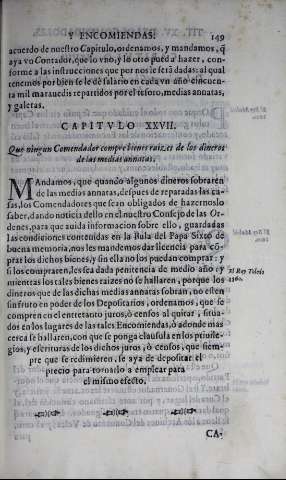 Y ENCOMIENDAS. 149
acuerdo de nuestro Capitulo, ordenamos, y mandamos, q̃
aya vn Contador, que lo vno, y lo otro pueda hazer, con-
forme a las instrucciones que por nos le serã dadas: al qual
tenemos por bien se le dè salario en cada vn año cincuen-
ta mil marauedis repartidos por el tesoro, medias annatas,
y galeras.
CAPITVLO XXVII.
Que ningun Comendador compre bienes raizes de los dineros
de las medias annatas.
MAndamos, que quando algunos dineros sobraren
de las medias annatas, despues de reparadas las ca-
sas, los Comendadores que sean obligados de hazernoslo
saber, dando noticia dello en el nuestro Consejo de las Or-
denes, para que auida informacion sobre ello, guardadas
las condiciones contenidas en la Bula del Papa Sixto de
buena memoria, nos les mandemos dar licencia para cõ-
prar los dichos bienes, y sin ella no los puedan comprar: y
si los compraren, les sea dada penitencia de medio año: y
mientras los tales bienes raizes no se hallaren, porque los
dineros que de las dichas medias annatas sobran, no esten
sin fruto en poder de los Depositarios, ordenamos, que se
compren en el entretanto juros, ò censos al quitar, situa-
dos en los lugares de las tales Encomiendas, ò adonde mas
cerca se hallaren, con que se ponga clausula en los priuile-
gios, y escrituras de los dichos juros, ò censos, que siem-
pre que se redimieren, se aya de depositar el
precio para tornarlo a emplear para
el mismo efecto.
El Rey
CA-